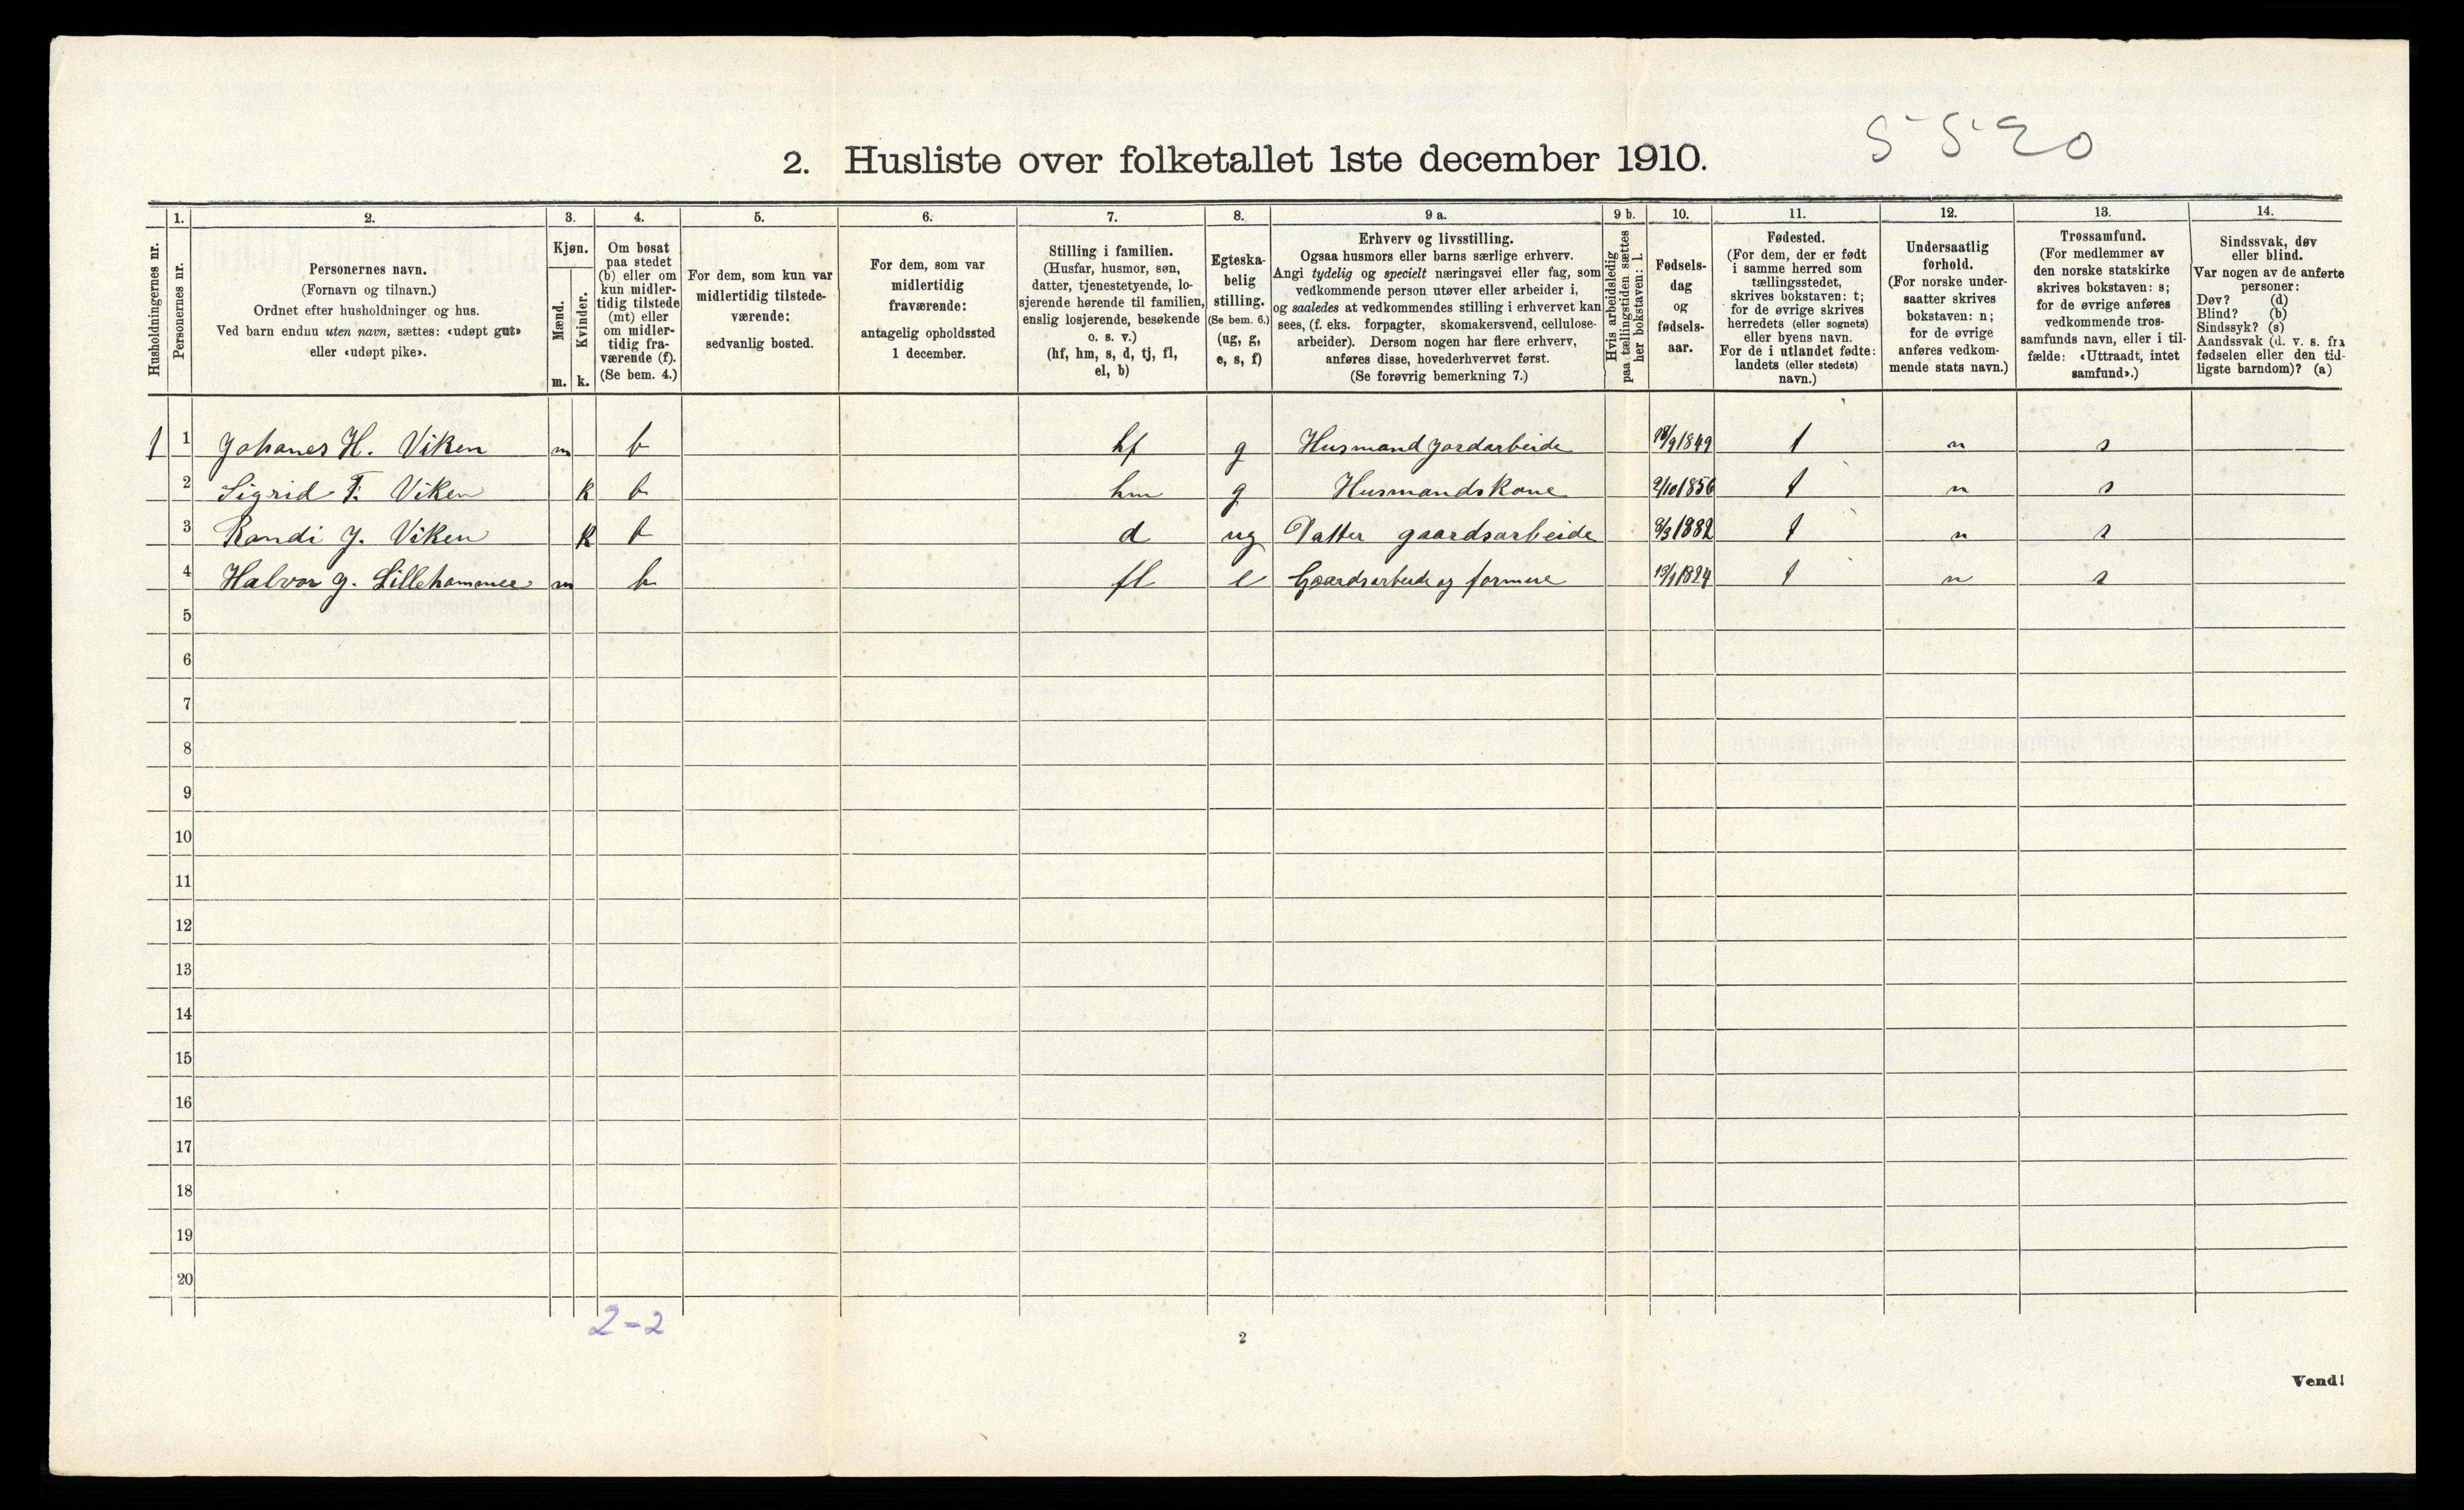 5520
2. Husliste over folketallet 1ste december 1910.
Husholdningernes nr.
1. Personernes nr.
2. Personernes navn.
(Fornavn og tilnavn.)
Ordnet efter husholdninger og hus.
Ved barn endnu uten navn, sættes: «udøpt gut»
eller «udøpt pike».
3. Kjøn.
Mænd. m.
Kvinder. k.
4. Om bosat
paa stedet
(b) eller om
kun midler-
tidig tilstede
(mt) eller
om midler-
tidig fra-
værende (f).
(Se bem. 4.)
5. For dem, som kun var
midlertidig tilstede-
værende:
sedvanlig bosted.
6. For dem, som var
midlertidig
fraværende:
antagelig opholdssted
1 december.
7. Stilling i familien.
(Husfar, husmor, søn,
datter, tjenestetyende, lo-
sjerende hørende til familien,
enslig losjerende, besøkende
o. s. v.)
(hf, hm, s, d, tj, fl,
el, b)
8. Egteska-
belig
stilling.
(Se bem. 6.)
(ug, g,
e, s, f)
9 a. Erhverv og livsstilling.
Ogsaa husmors eller barns særlige erhverv.
Angi tydelig og specielt næringsvei eller fag, som
vedkommende person utøver eller arbeider i,
og saaledes at vedkommendes stilling i erhvervet kan
sees, (f. eks. forpagter, skomakersvend, cellulose-
arbeider). Dersom nogen har flere erhverv,
anføres disse, hovederhvervet først.
(Se forøvrig bemerkning 7.)
9 b. Hvis arbeidsledig
paa tællingstiden sættes
her bokstaven: l.
10. Fødsels-
dag
og
fødsels-
aar.
11. Fødested.
(For dem, der er født
i samme herred som
tællingsstedet,
skrives bokstaven: t;
for de øvrige skrives
herredets (eller sognets)
eller byens navn.
For de i utlandet fødte:
landets (eller stedets)
navn.)
12. Undersaatlig
forhold.
(For norske under-
saatter skrives
bokstaven: n;
for de øvrige
anføres vedkom-
mende stats navn.)
13. Trossamfund.
(For medlemmer av
den norske statskirke
skrives bokstaven: s;
for de øvrige anføres
vedkommende tros-
samfunds navn, eller i til-
fælde: «Uttraadt, intet
samfund».)
14. Sindssvak, døv
eller blind.
Var nogen av de anførte
personer:
Døv? (d)
Blind? (b)
Sindssyk? (s)
Aandssvak (d. v. s. fra
fødselen eller den tid-
ligste barndom)? (a)
1 1 Johanes H. Viken m b hf g Husmand jordarbeide 18/9 1849 t n s
2 Sigrid T. Viken k b hm g Husmandskone 2/10 1856 t n s
3 Randi J. Viken k b d ug Datter gaardsarbeide 8/3 1882 t n s
4 Halvor J. Lillehammer m b fl e Gaardsarbeide og formue 13/1 1824 t n s
5
6
7
8
9
10
11
12
13
14
15
16
17
18
19
20
2-2
2
Vend!